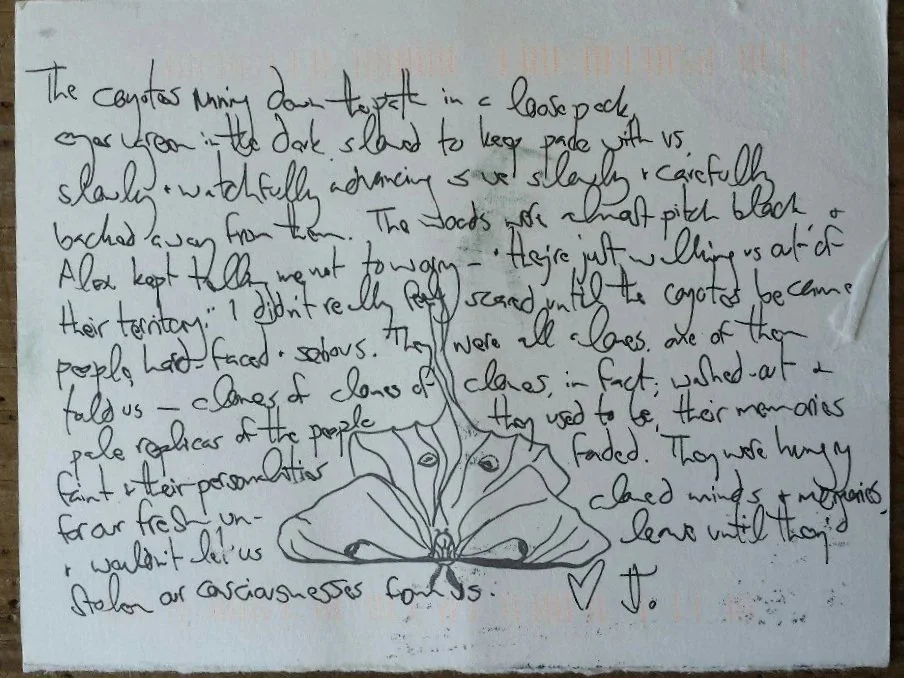 The coyotes running down the path in a loose pack,
eyes green in the dark, slowed to keep pace with us,
slowly + watchfully advancing as we slowly + carefully
backed away from them. The woods were almost pitch black +
Alex kept telling me not to worry — "they're just walking us out of
their territory." I didn't really feel scared until the coyotes became
people, hard-faced + serious. They were all clones, one of them
told us — clones of clones of clones, in fact; washed-out +
pale replicas of the people they used to be, their memories
faint + their personalities faded. They were hungry
for our fresh, un-cloned minds + memories,
+ wouldn't let us leave until they'd
stolen our consciousnesses from us. ♡ J.